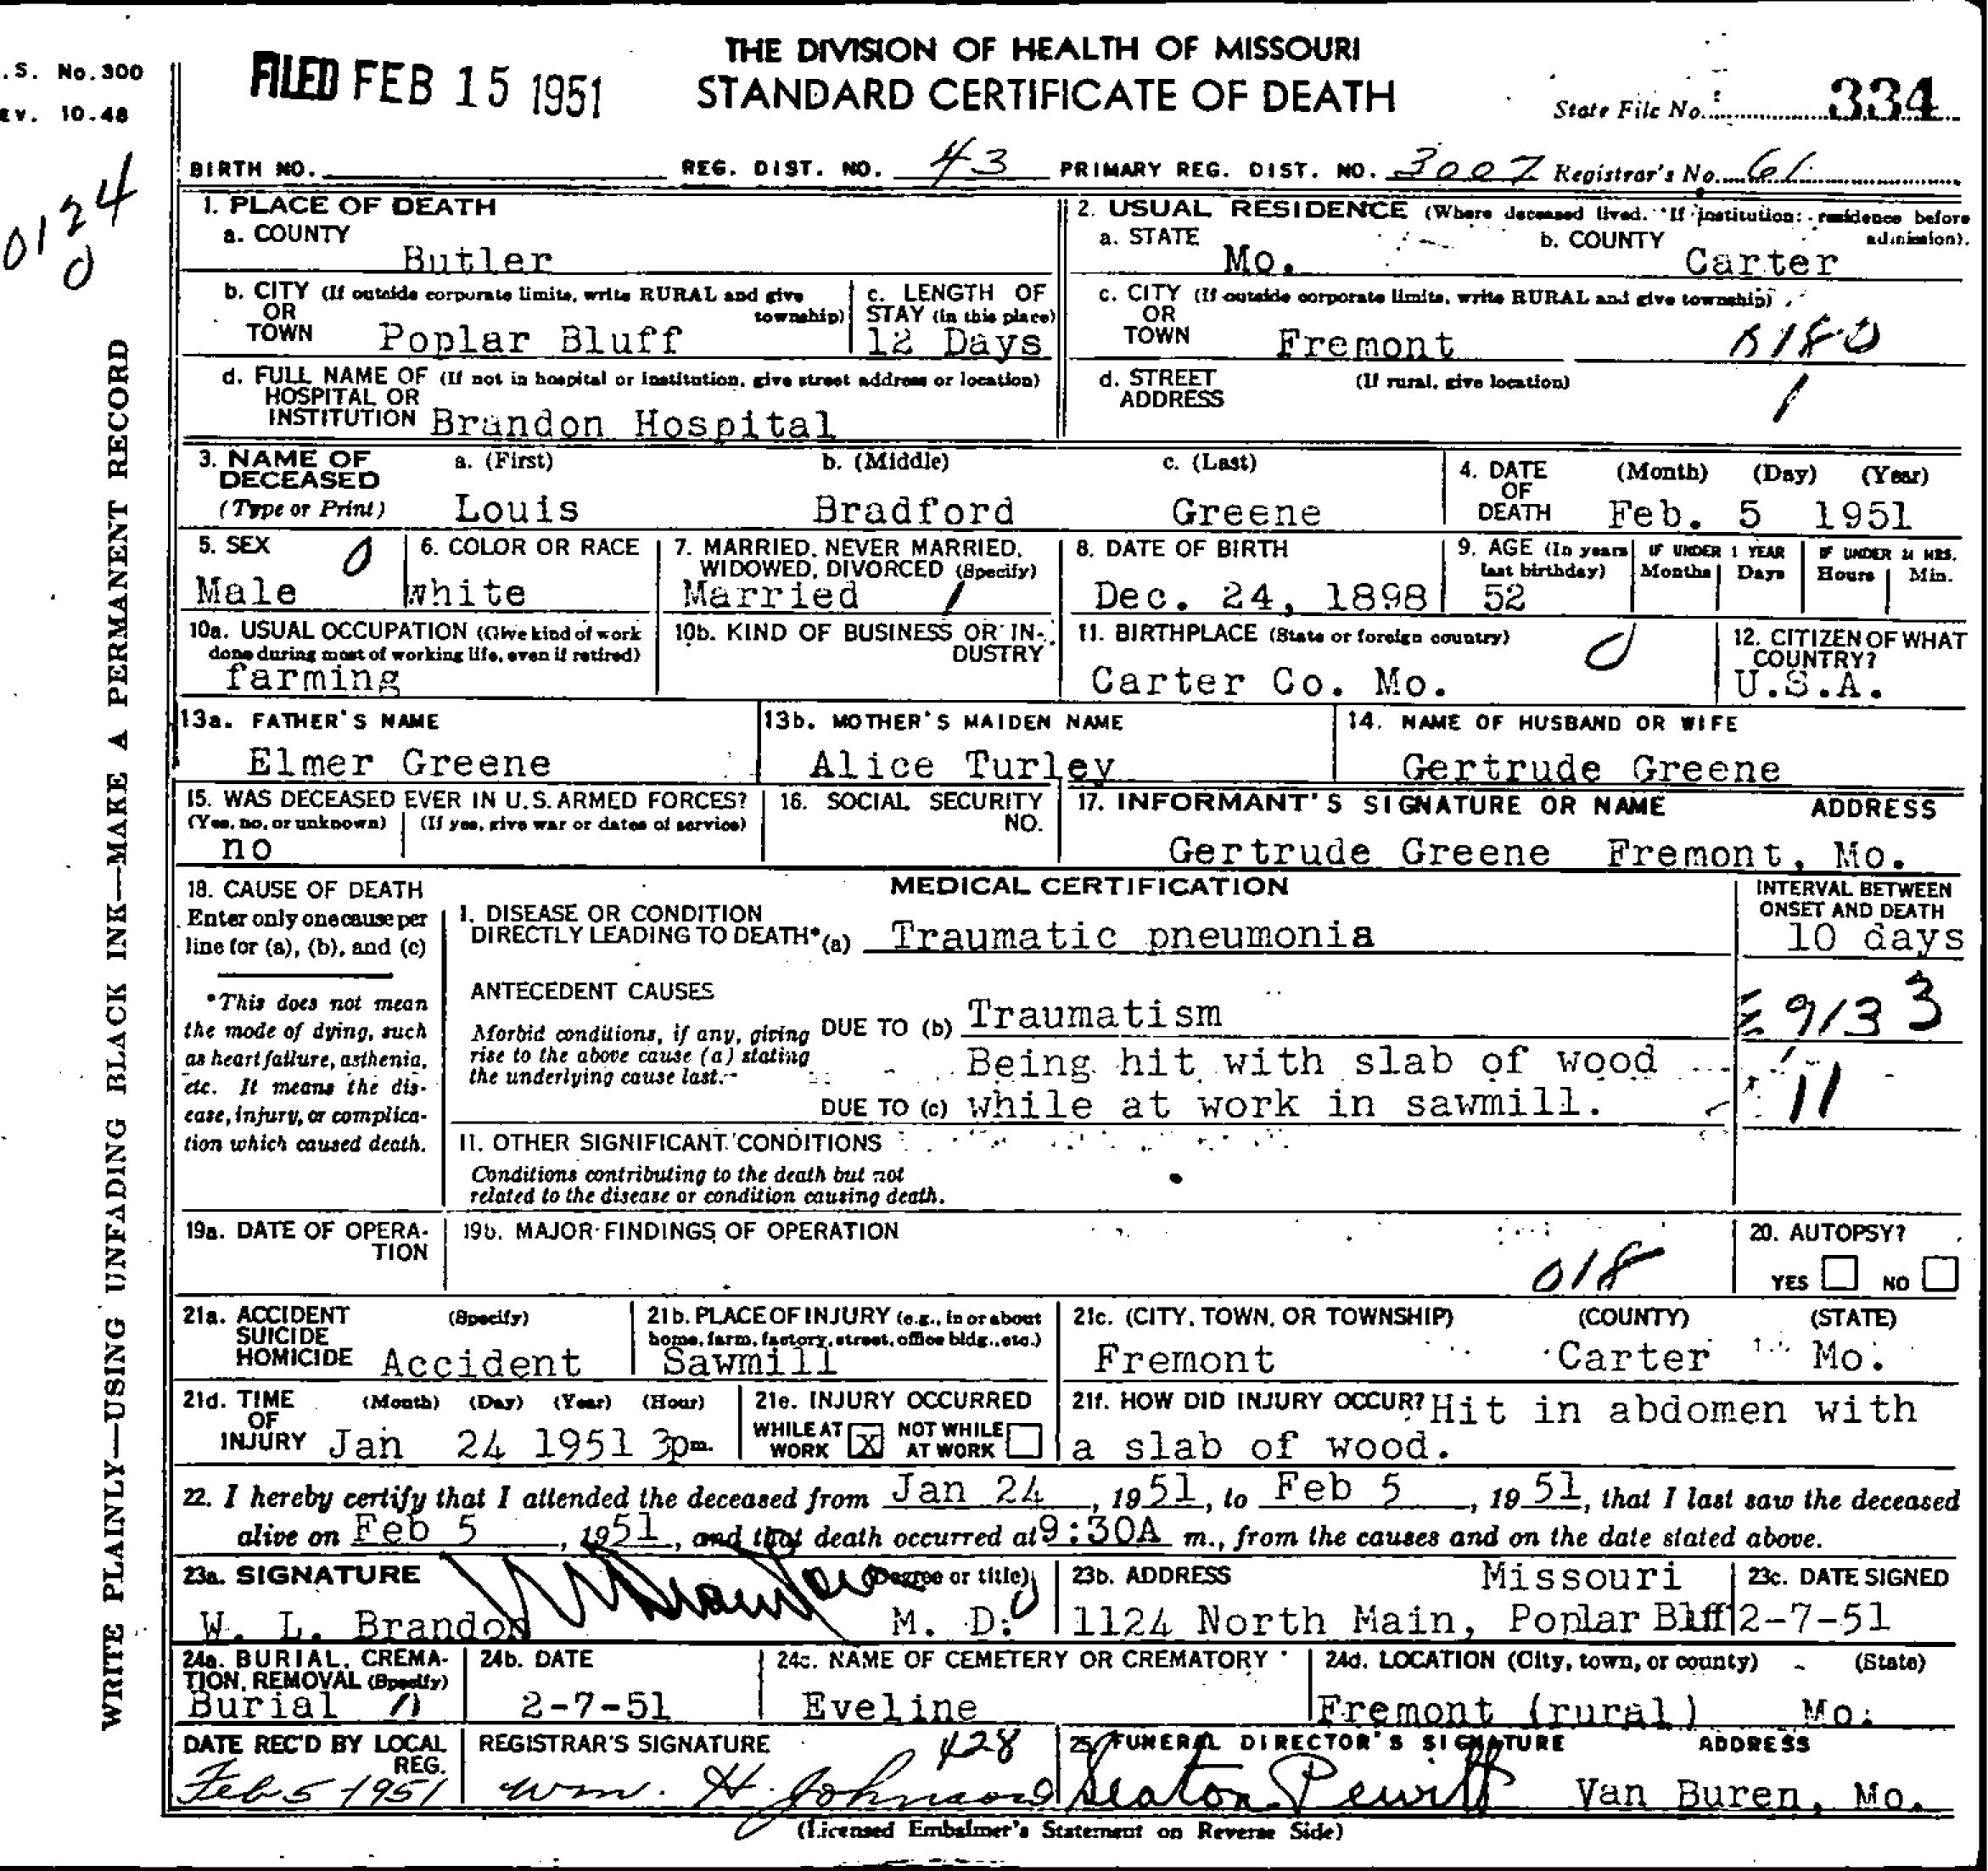 .S. No.300
EV. 10-48
0124
0
FILED FEB 15 1951
THE DIVISION OF HEALTH OF MISSOURI
STANDARD CERTIFICATE OF DEATH
State File No. 334
BIRTH NO. REG. DIST. NO. 43 PRIMARY REG. DIST. NO. 3007 Registrar's No. 61
WRITE PLAINLY—USING UNFADING BLACK INK—MAKE A PERMANENT RECORD
1. PLACE OF DEATH
a. COUNTY
Butler
2. USUAL RESIDENCE (Where deceased lived. If institution: residence before admission).
a. STATE Mo. b. COUNTY Carter
b. CITY (If outside corporate limits, write RURAL and give township)
OR
TOWN Poplar Bluff
c. LENGTH OF
STAY (in this place)
12 Days
c. CITY (If outside corporate limits, write RURAL and give township)
OR
TOWN Fremont
d. FULL NAME OF (If not in hospital or institution, give street address or location)
HOSPITAL OR
INSTITUTION Brandon Hospital
d. STREET (If rural, give location)
ADDRESS
1
3. NAME OF a. (First) b. (Middle) c. (Last)
DECEASED
(Type or Print) Louis Bradford Greene
4. DATE (Month) (Day) (Year)
OF
DEATH Feb. 5 1951
5. SEX 0
Male
6. COLOR OR RACE
white
7. MARRIED, NEVER MARRIED,
WIDOWED, DIVORCED (Specify)
Married 1
8. DATE OF BIRTH
Dec. 24, 1898
9. AGE (In years last birthday)
52
IF UNDER 1 YEAR
Months Days
IF UNDER 24 HRS.
Hours Min.
10a. USUAL OCCUPATION (Give kind of work
done during most of working life, even if retired)
farming
10b. KIND OF BUSINESS OR IN-
DUSTRY
11. BIRTHPLACE (State or foreign country) 0
Carter Co. Mo.
12. CITIZEN OF WHAT
COUNTRY?
U.S.A.
13a. FATHER'S NAME
Elmer Greene
13b. MOTHER'S MAIDEN NAME
Alice Turley
14. NAME OF HUSBAND OR WIFE
Gertrude Greene
15. WAS DECEASED EVER IN U.S. ARMED FORCES?
(Yes, no, or unknown) (If yes, give war or dates of service)
no
16. SOCIAL SECURITY
NO.
17. INFORMANT'S SIGNATURE OR NAME ADDRESS
Gertrude Greene Fremont, Mo.
18. CAUSE OF DEATH
Enter only one cause per
line for (a), (b), and (c)
*This does not mean
the mode of dying, such
as heart failure, asthenia,
etc. It means the dis-
ease, injury, or complica-
tion which caused death.
MEDICAL CERTIFICATION
I. DISEASE OR CONDITION
DIRECTLY LEADING TO DEATH*(a) Traumatic pneumonia
ANTECEDENT CAUSES
Morbid conditions, if any, giving
rise to the above cause (a) stating
the underlying cause last.
DUE TO (b) Traumatism
Being hit with slab of wood
DUE TO (c) while at work in sawmill.
II. OTHER SIGNIFICANT CONDITIONS
Conditions contributing to the death but not
related to the disease or condition causing death.
INTERVAL BETWEEN
ONSET AND DEATH
10 days
9133
11
19a. DATE OF OPERA-
TION
19b. MAJOR FINDINGS OF OPERATION
018
20. AUTOPSY?
YES NO
21a. ACCIDENT (Specify)
SUICIDE
HOMICIDE Accident
21b. PLACE OF INJURY (e.g., in or about
home, farm, factory, street, office bldg., etc.)
Sawmill
21c. (CITY, TOWN, OR TOWNSHIP) (COUNTY) (STATE)
Fremont Carter Mo.
21d. TIME (Month) (Day) (Year) (Hour)
OF
INJURY Jan 24 1951 3pm.
21e. INJURY OCCURRED
WHILE AT WORK X NOT WHILE AT WORK
21f. HOW DID INJURY OCCUR? Hit in abdomen with
a slab of wood.
22. I hereby certify that I attended the deceased from Jan 24, 1951, to Feb 5, 1951, that I last saw the deceased
alive on Feb 5, 1951, and that death occurred at 9:30A m., from the causes and on the date stated above.
23a. SIGNATURE (Degree or title)
W. L. Brandon M. D.
23b. ADDRESS Missouri
1124 North Main, Poplar Bluff
23c. DATE SIGNED
2-7-51
24a. BURIAL, CREMA-
TION, REMOVAL (Specify)
Burial
24b. DATE
2-7-51
24c. NAME OF CEMETERY OR CREMATORY
Eveline
24d. LOCATION (City, town, or county) (State)
Fremont (rural) Mo.
DATE REC'D BY LOCAL
REG.
Feb 5 1951
REGISTRAR'S SIGNATURE 428
Wm. H. Johnson
25. FUNERAL DIRECTOR'S SIGNATURE ADDRESS
Seaton Pewitt Van Buren, Mo.
(Licensed Embalmer's Statement on Reverse Side)